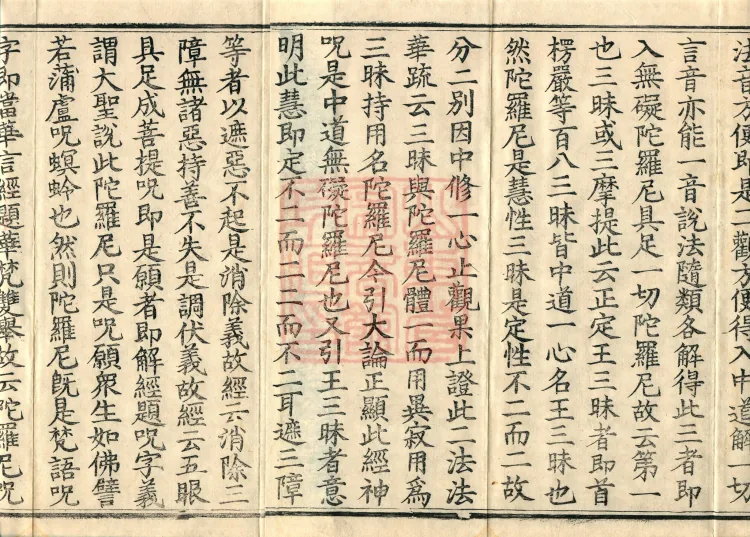 法音方便即是二觀方便得入中道解一切
言音亦能一音說法隨類各解得此三者即
入無礙陀羅尼具足一切陀羅尼故云第一
也三昧或三摩提此云正定王三昧者即首
楞嚴等百八三昧皆中道一心名王三昧也
然陀羅尼是慧性三昧是定性不二而二故
分二別因中修一心止觀果上證此二法法
華疏云三昧與陀羅尼體一而用異寂用為
三昧持用名陀羅尼今引大論正顯此經神
呪是中道無礙陀羅尼也又引王三昧者意
明此慧即定不二而二二而不二耳遮三障
等者以遮惡不起是消除義故經云消除三
障無諸惡持善不失是調伏義故經云五眼
具足成菩提呪即是願者即解經題呪字義
謂大聖說此陀羅尼只是呪願眾生如佛譬
若蒲盧呪螟蛉也然則陀羅尼既是梵語呪
字即當華言經題華梵雙舉故云陀羅尼呪